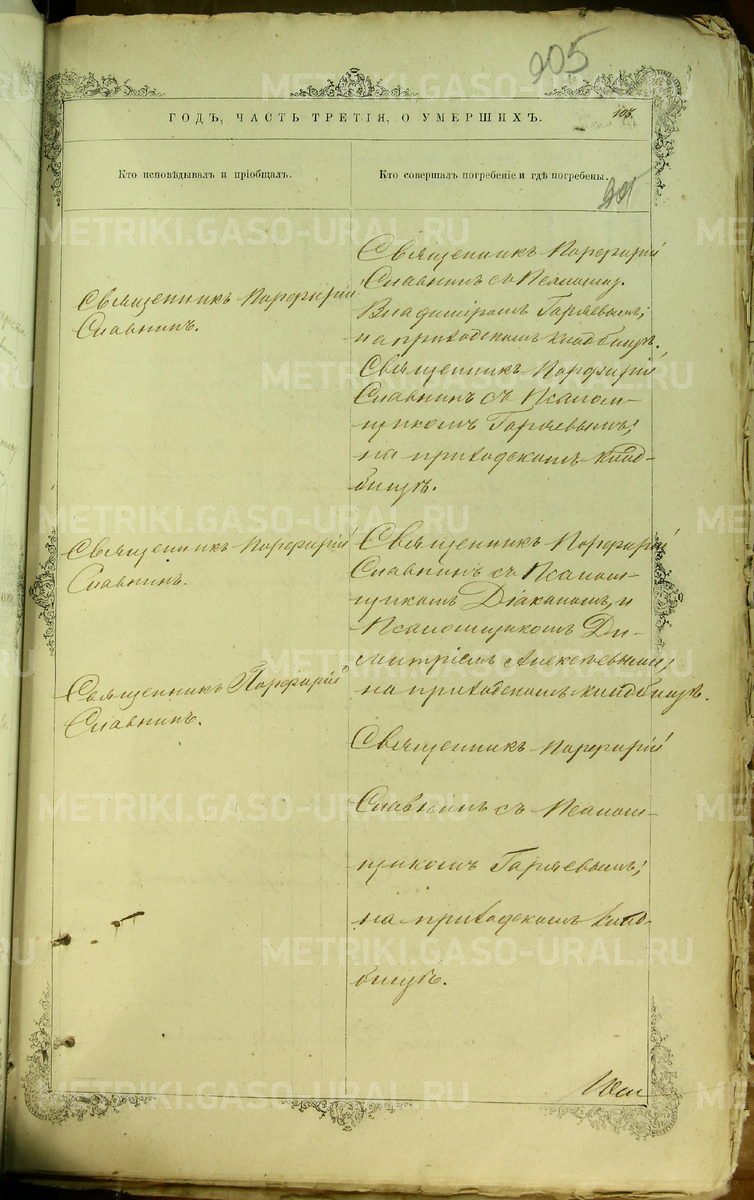 205
108.
ГОДЪ, ЧАСТЬ ТРЕТІЯ, О УМЕРШИХЪ.
Кто исповѣдывалъ и пріобщалъ.
Кто совершалъ погребеніе и гдѣ погребены.
Священникъ Порфирій
Славнинъ.
Священникъ Порфирій
Славнинъ съ Псаломщ.
Владиміромъ Горяевымъ;
на приходскомъ кладбищѣ.
Священникъ Порфирій
Славнинъ съ Псалом-
щикомъ Горяевымъ;
на приходскомъ клад-
бищѣ.
Священникъ Порфирій
Славнинъ.
Священникъ Порфирій
Славнинъ съ Псалом-
щикомъ Діакономъ, и
Псаломщикомъ Ди-
митріемъ Алексѣевымъ;
на приходскомъ кладбищѣ.
Священникъ Порфирій
Славнинъ.
Священникъ Порфирій
Славнинъ съ Псалом-
щикомъ Горяевымъ;
на приходскомъ клад-
бищѣ.
METRIKI.GASO-URAL.RU